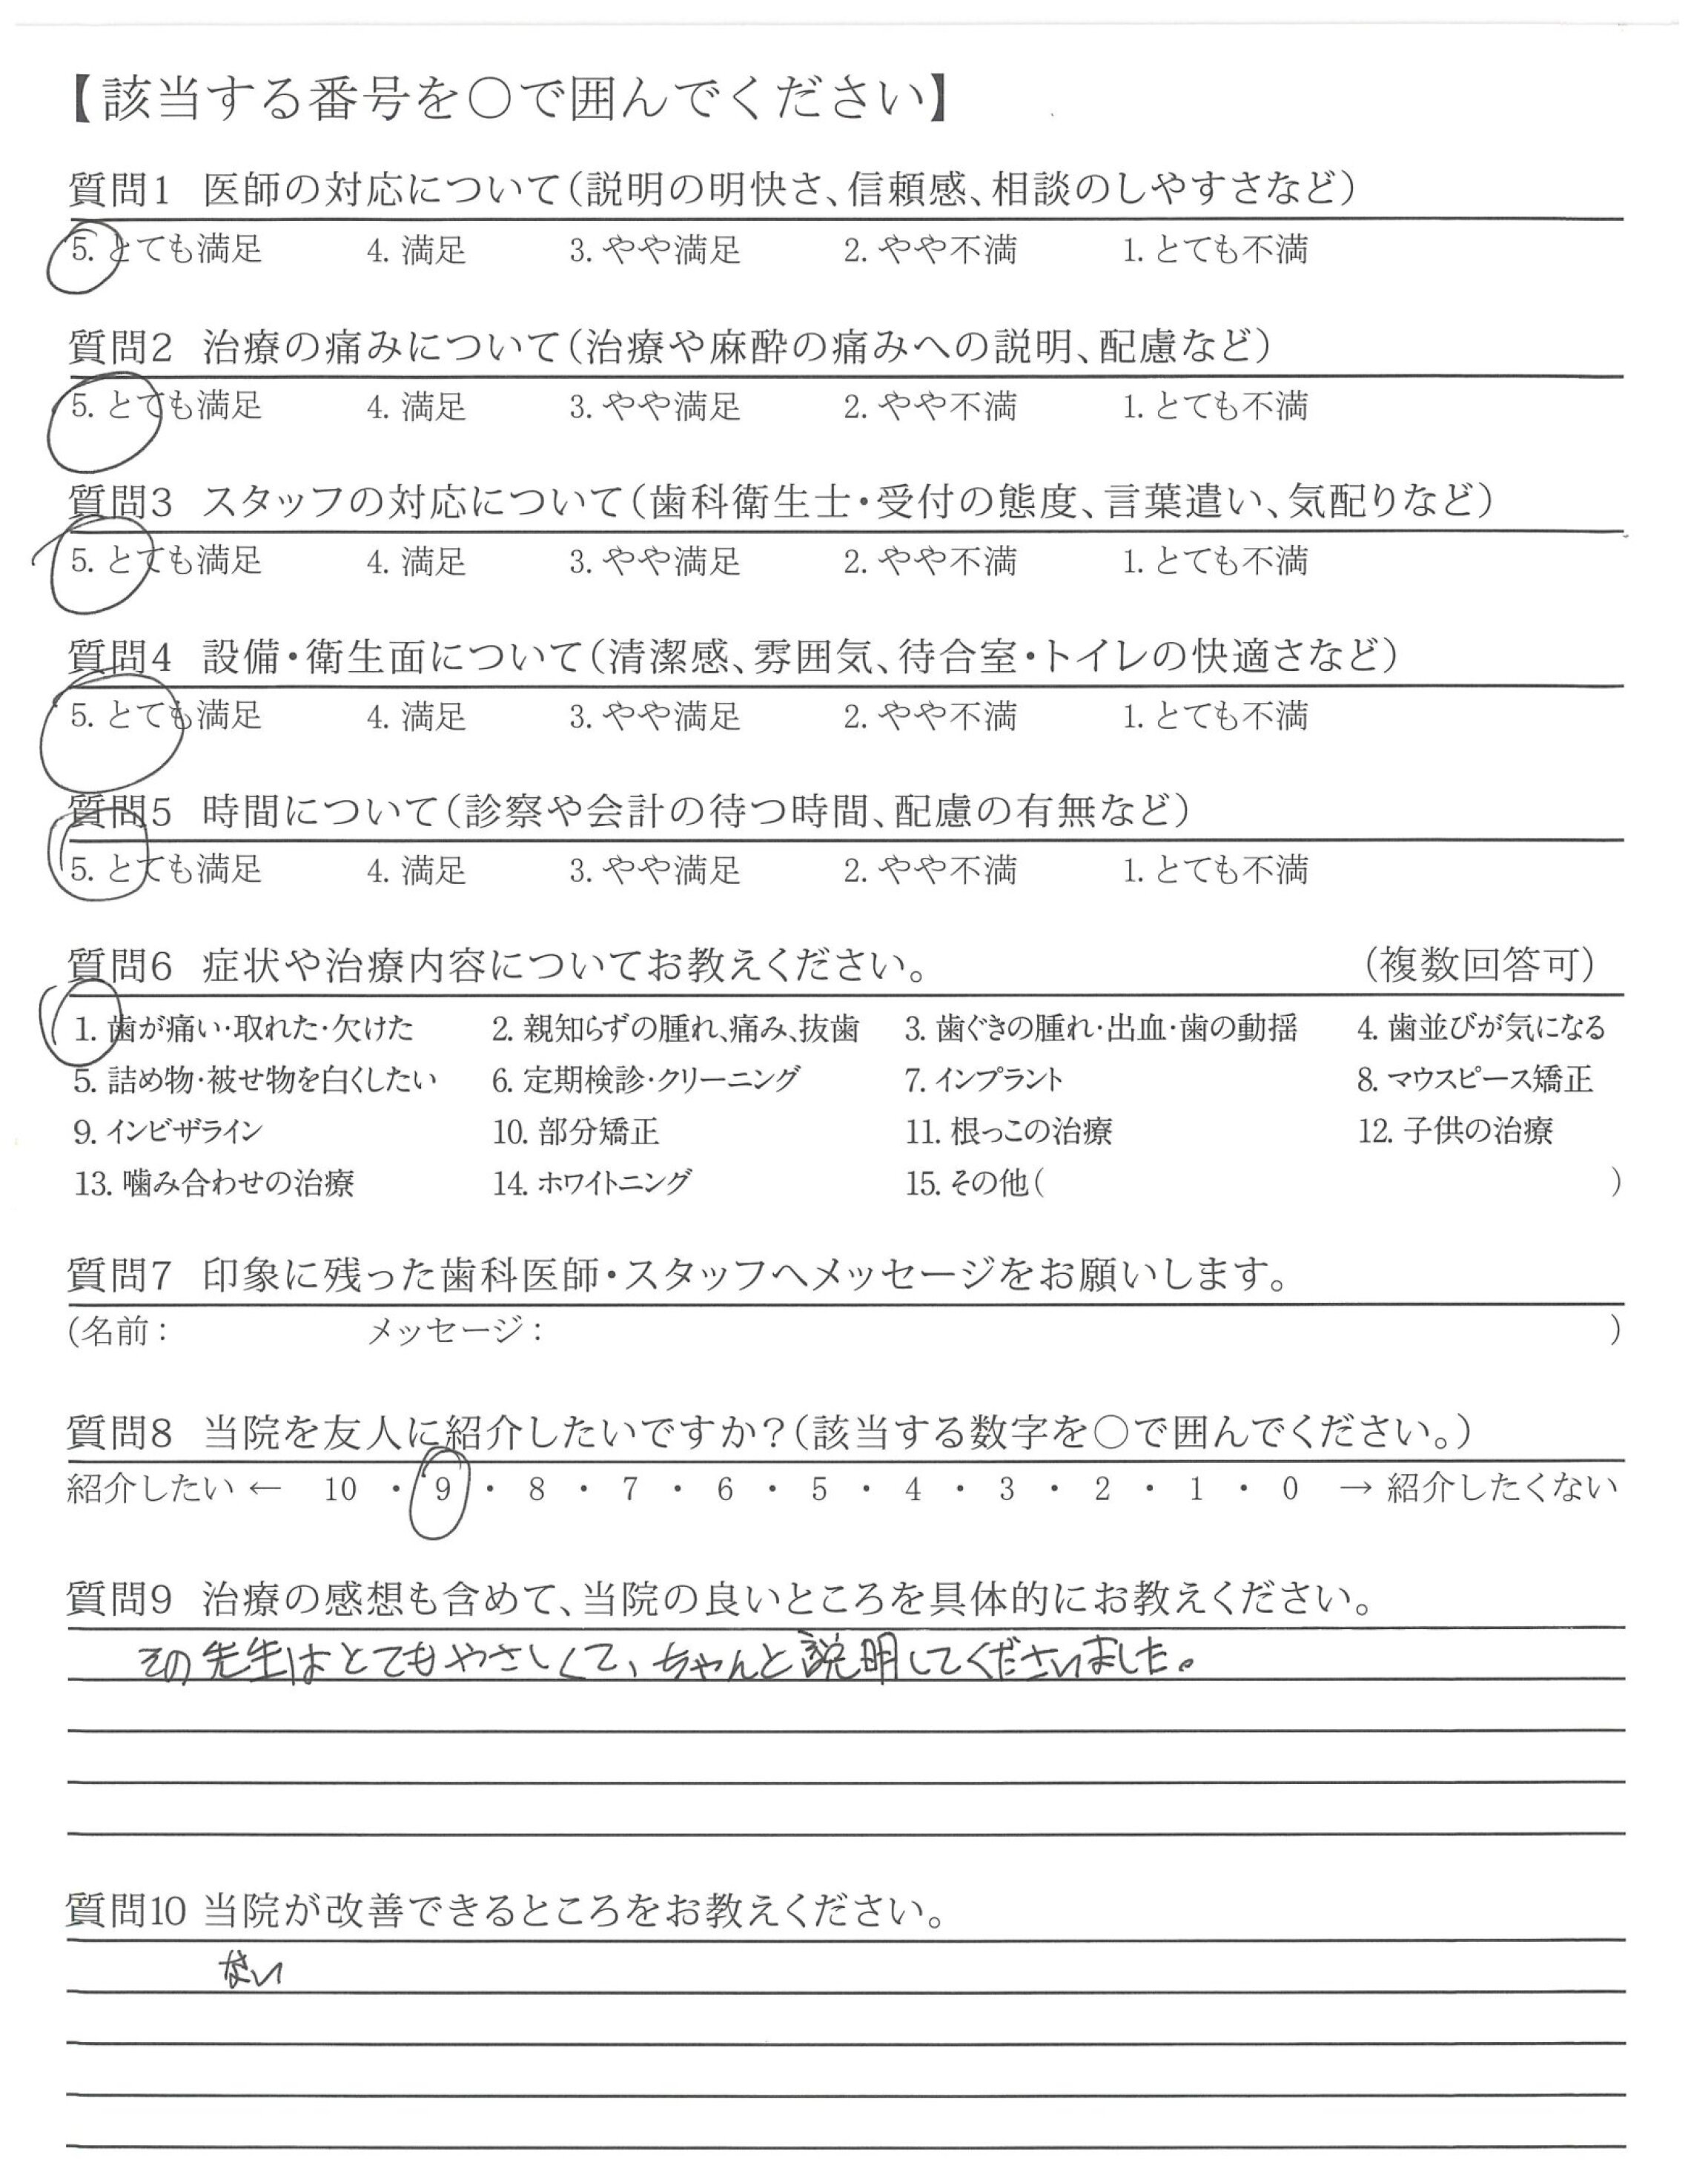 【該当する番号を〇で囲んでください】
質問1 医師の対応について(説明の明快さ、信頼感、相談のしやすさなど)
5. とても満足 4. 満足 3. やや満足 2. やや不満 1. とても不満
質問2 治療の痛みについて(治療や麻酔の痛みへの説明、配慮など)
5. とても満足 4. 満足 3. やや満足 2. やや不満 1. とても不満
質問3 スタッフの対応について(歯科衛生士・受付の態度、言葉遣い、気配りなど)
5. とても満足 4. 満足 3. やや満足 2. やや不満 1. とても不満
質問4 設備・衛生面について(清潔感、雰囲気、待合室・トイレの快適さなど)
5. とても満足 4. 満足 3. やや満足 2. やや不満 1. とても不満
質問5 時間について(診察や会計の待つ時間、配慮の有無など)
5. とても満足 4. 満足 3. やや満足 2. やや不満 1. とても不満
質問6 症状や治療内容についてお教えください。 (複数回答可)
1. 歯が痛い・取れた・欠けた 2. 親知らずの腫れ、痛み、抜歯 3. 歯ぐきの腫れ・出血・歯の動揺 4. 歯並びが気になる
5. 詰め物・被せ物を白くしたい 6. 定期検診・クリーニング 7. インプラント 8. マウスピース矯正
9. インビザライン 10. 部分矯正 11. 根っこの治療 12. 子供の治療
13. 噛み合わせの治療 14. ホワイトニング 15. その他( )
質問7 印象に残った歯科医師・スタッフへメッセージをお願いします。
(名前: メッセージ: )
質問8 当院を友人に紹介したいですか?(該当する数字を〇で囲んでください。)
紹介したい ← 10 ・ 9 ・ 8 ・ 7 ・ 6 ・ 5 ・ 4 ・ 3 ・ 2 ・ 1 ・ 0 → 紹介したくない
質問9 治療の感想も含めて、当院の良いところを具体的にお教えください。
その先生はとてもやさしくて、ちゃんと説明してくださいました。
質問10 当院が改善できるところをお教えください。
ない